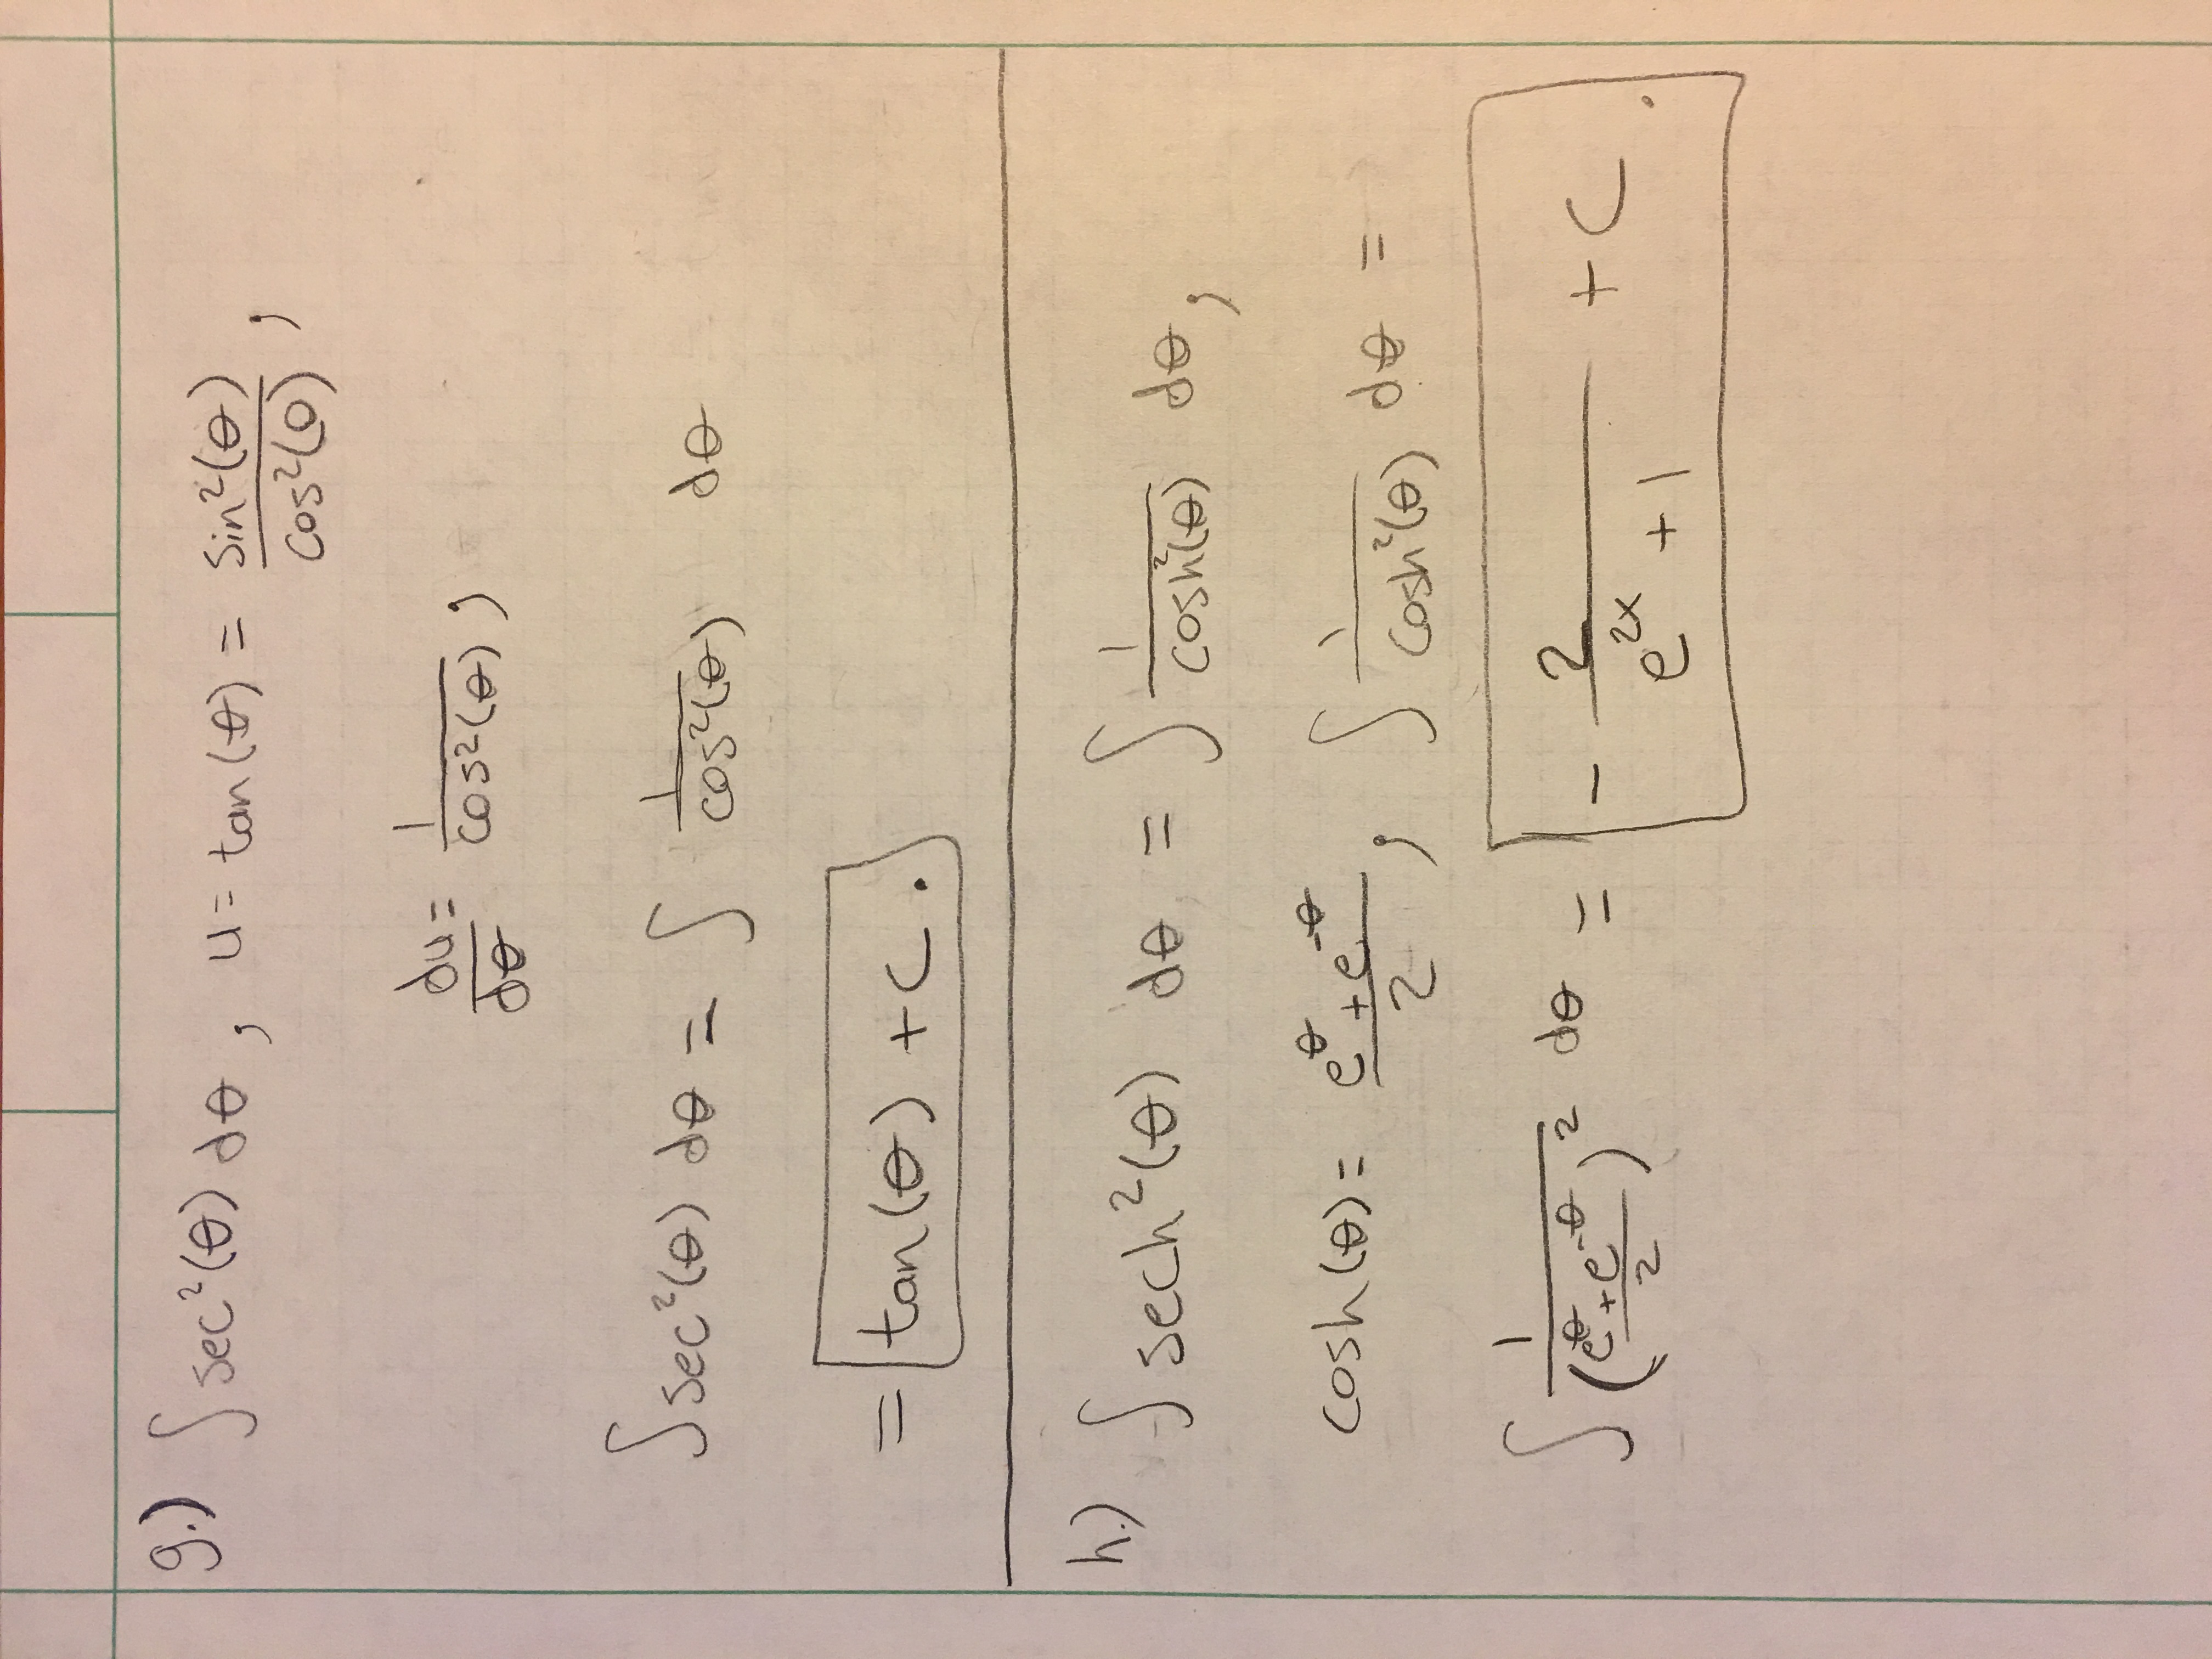 g.) ∫ sec²(θ) dθ , u = tan(θ) = sin²(θ)/cos²(0) ,
du/dθ = 1/cos²(θ) ,
∫ sec²(θ) dθ = ∫ 1/cos²(θ) dθ
= tan(θ) + C .
h.) ∫ sech²(θ) dθ = ∫ 1/cosh²(θ) dθ ,
cosh(θ) = (e^θ + e^-θ)/2 , ∫ 1/cosh²(θ) dθ =
∫ 1/((e^θ + e^-θ)/2)² dθ = - 2/(e^2x + 1) + C .